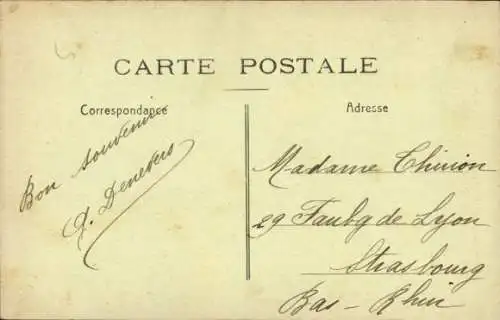 CARTE POSTALE
Correspondance
Adresse
Bon souvenir
G. Denevers
Madame Chirion
29 Faubg de Lyon
Strasbourg
Bas-Rhin